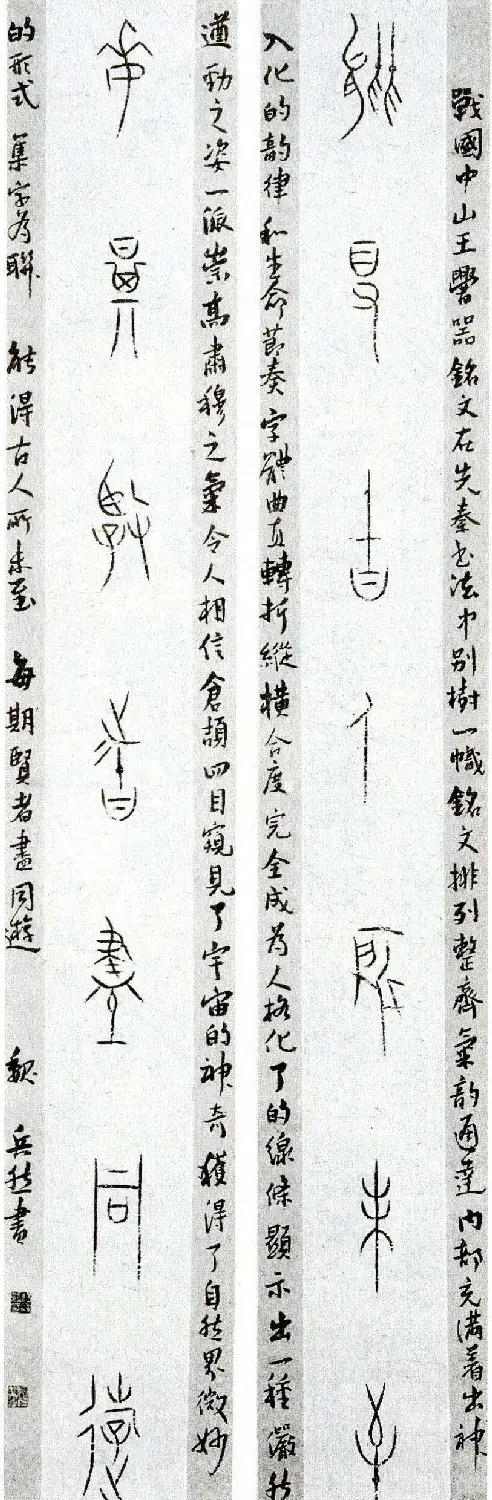 戰國中山王譽器銘文在先秦书法中别樹一幟銘文排列整齊氣韵通達内部充满着出神
能得古人所未至
入化的韵律和生命節奏字體曲直轉折縱横合度完全成为人格化了的線條顯示出一種嚴然
遒勁之姿一派崇高肅穆之氣令人相信倉頡四目窺見了宇宙的神奇獲得了自然界微妙
每期賢者盡同遊
的形式 集字为聯 能得古人所未至 每期賢者盡同遊 魏 兵然書